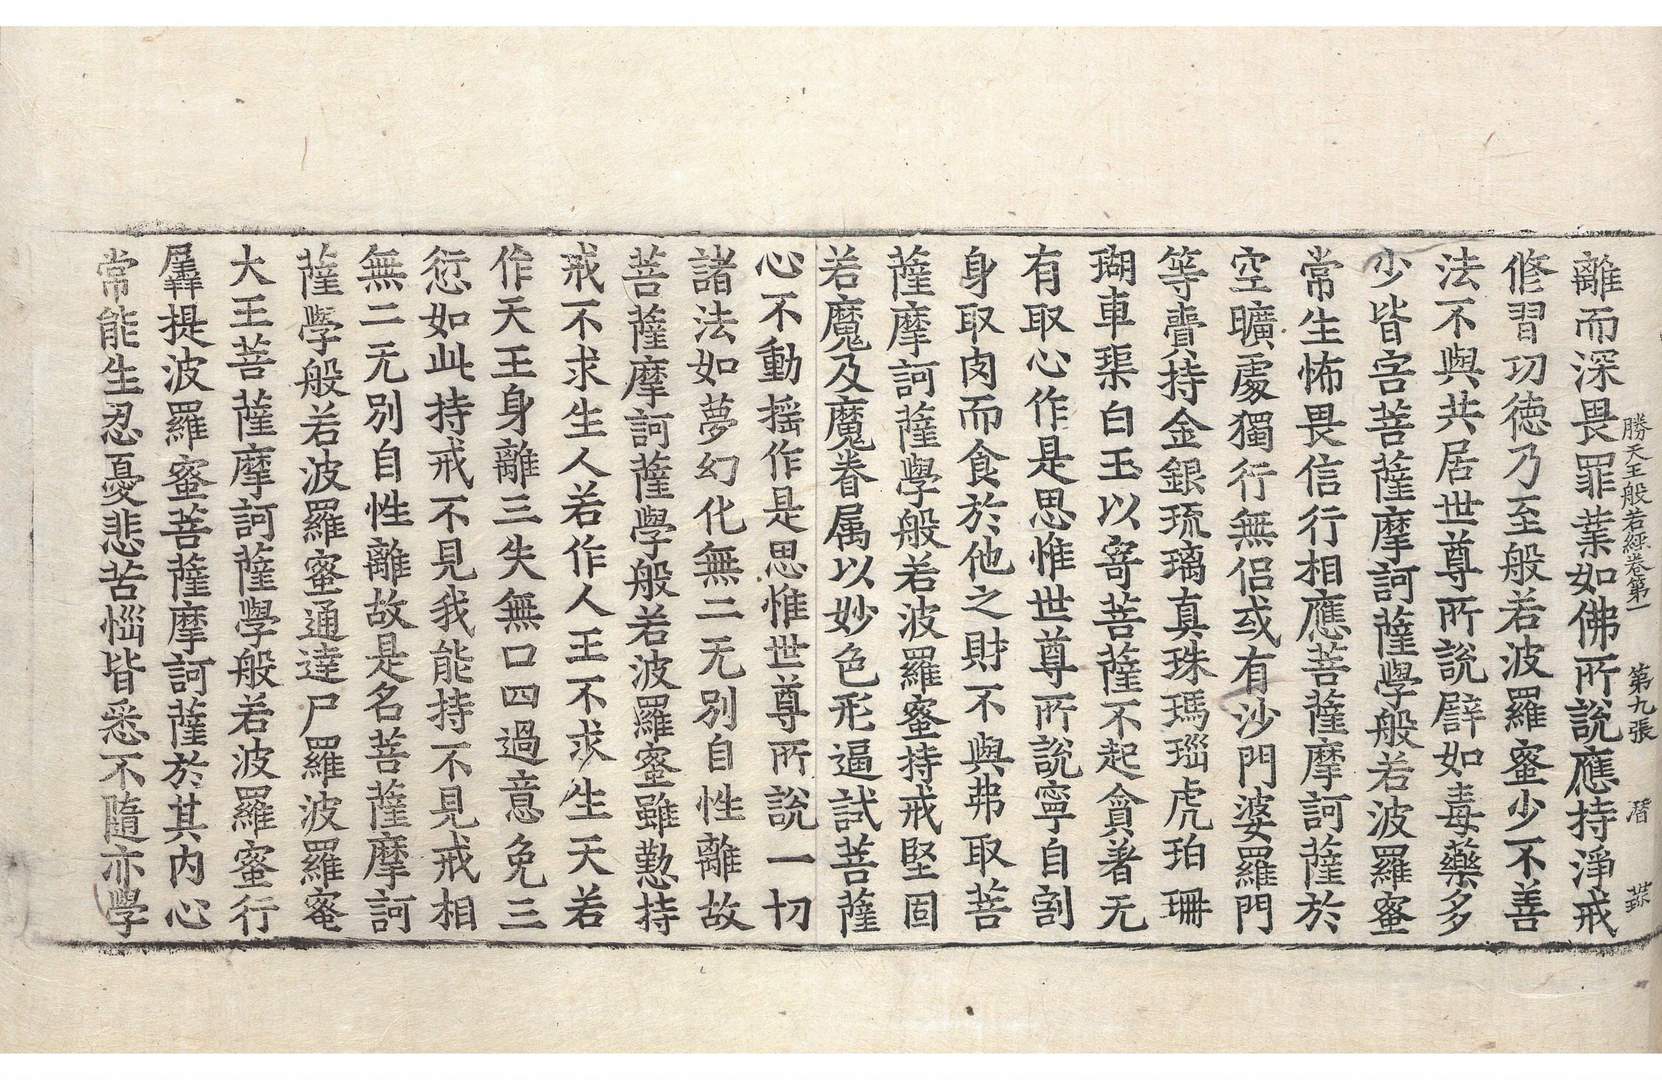 勝天王般若經卷第一　第九張
離而深畏罪業如佛所説應持淨戒
修習功德乃至般若波羅蜜少不善
法不與共居世尊所説譬如毒藥多
少皆害菩薩摩訶薩學般若波羅蜜
常生怖畏信行相應菩薩摩訶薩於
空曠處獨行無侣或有沙門婆羅門
等賷持金銀琉璃真珠瑪瑙虎珀珊
瑚車璖白玉以寄菩薩不起貪著无
有取心作是思惟世尊所説寧自割
身取肉而食於他之財不與弗取菩
薩摩訶薩學般若波羅蜜持戒堅固
若魔及魔眷属以妙色形逼試菩薩
心不動摇作是思惟世尊所説一切
諸法如夢幻化無二无别自性離故
菩薩摩訶薩學般若波羅蜜雖懃持
戒不求生人若作人王不求生天若
作天王身離三失無口四過意免三
愆如此持戒不見我能持不見戒相
無二无别自性離故是名菩薩摩訶
薩學般若波羅蜜通達尸羅波羅蜜
大王菩薩摩訶薩學般若波羅蜜行
羼提波羅蜜菩薩摩訶薩於其内心
常能生忍憂悲苦惱皆悉不隨亦學